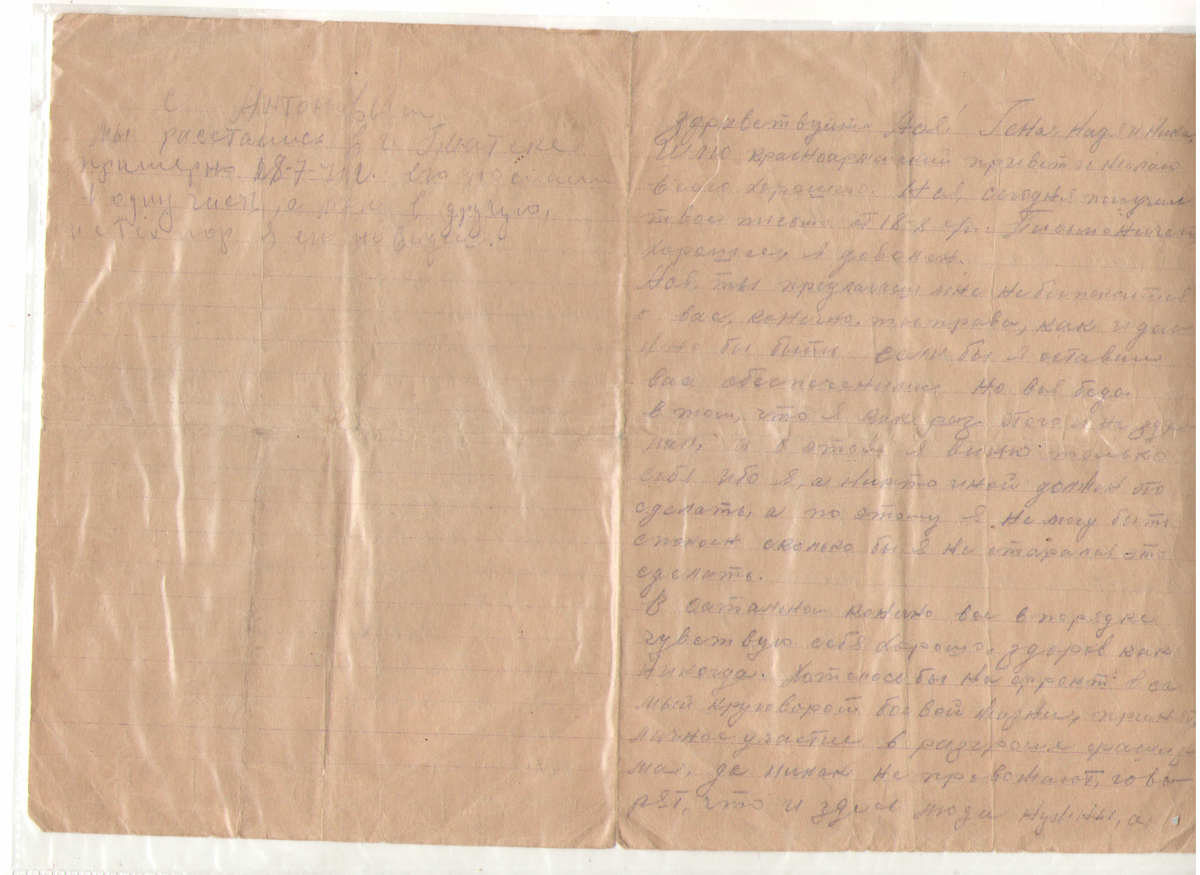 с. Антоновым
мы расстались в г.
примерно 28-7-41г. его послали
в одну часть, а меня в другую,
и с тех пор я его не видел.
Здравствуйте Ася, Гена, Надя и Ника
Шлю красноармейский привет и желаю
всего хорошего. Ася, сегодня получил
твое письмо от 18-8
хорошее я доволен.
Ася, ты предлагаеш мне не беспокоится
о вас, конечно, ты права, как и
но бы быть если бы я оставил
вас обеспеченными. Но вся беда
в том, что я как раз этого не
лал, и в этом я виню только
себя ибо я, а никто иной должен это
сделать, а по этому я не могу быть
спокоен сколько бы я не старался это
сделать.
В остальном конечно все в порядке
чувствую себя хорошо, здоров как
никогда. Хотелось бы на фронт в са
мый круговорот боевой жизни, принят
личное участие в разгроме фашиз
ма, да никак не провожают, гово
рят, что и здесь люди нужны, а